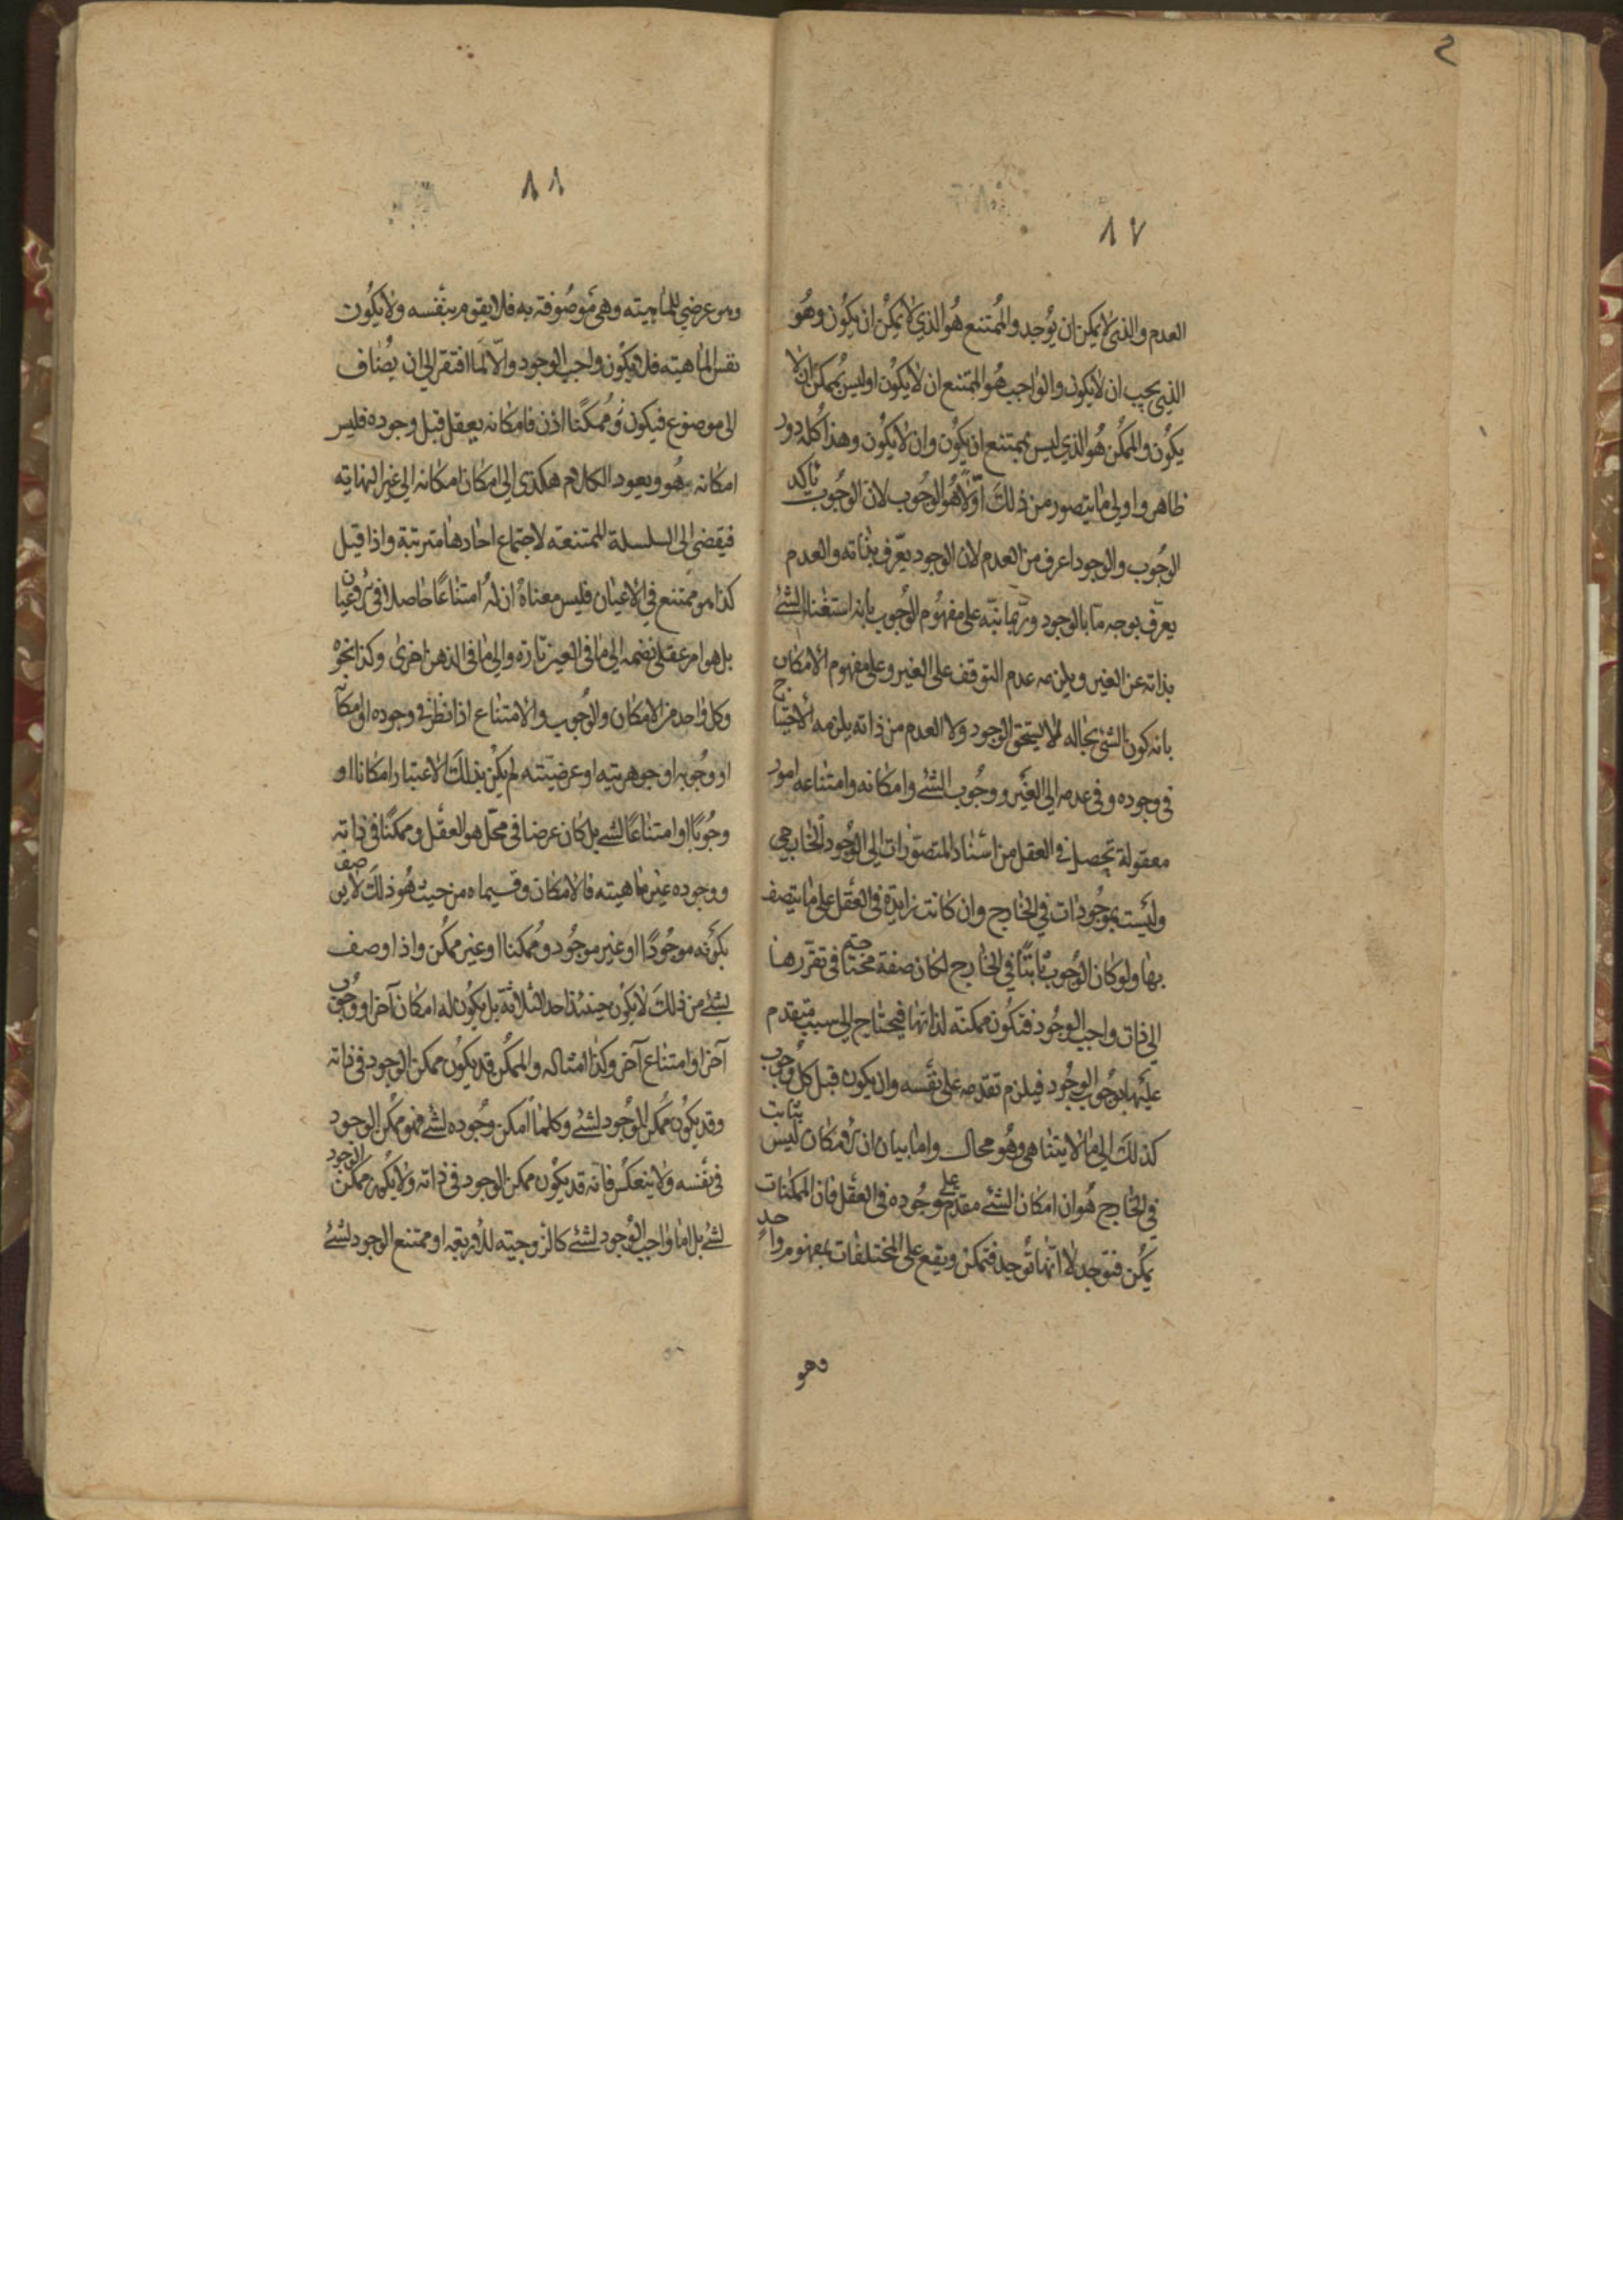 ٢
١٧
العدم والذي لا يمكن ان يوجد والممتنع هو الذي لا يمكن ان يكون وهو
الذي يجب ان لا يكون والواجب هو الممتنع ان لا يكون او ليس بممكن ان لا
يكون والممكن هو الذي ليس بممتنع ان يكون وان لا يكون وهذا كله دور
ظاهر واولى ما يتصور من ذلك اولا هو الوجوب لان الوجوب تاكد
الوجوب والوجود اعرف من العدم لان الوجود يعرف بذاته والعدم
يعرف بوجه ما بالوجود وربما نبه على مفهوم الوجوب بانه استغناء الشئ
بذاته عن الغير ويلزمه عدم التوقف على الغير وعلى مفهوم الامكان
بانه كون الشئ بحاله لا يستحق الوجود ولا العدم من ذاته يلزمه الاحتياج
في وجوده وفي عدمه الى الغير ووجوب الشئ وامكانه وامتناعه امور
معقولة تحصل في العقل من اسناد المتصورات الى الوجود الخارجي
وليست بموجودات في الخارج وان كانت زايدة في العقل على ما يتصف
بها ولو كان الوجوب ثابتا في الخارج لكان صفة محتاجة في تقررها
الى ذات واجب الوجود فتكون ممكنة لذاتها فيحتاج الى سبب متقدم
عليها بوجوب الوجود فيلزم تقدمه على نفسه وان يكون قبل كل وجوب
كذلك الى ما لا يتناهى وهو محال واما بيان ان الامكان ليس بثابت
في الخارج هو ان امكان الشئ مقدم على وجوده في العقل فان الممكنات
يمكن فتوجد لا انها توجد فتمكن ويقع على المختلفات بمفهوم واحد
وهو
١١
وهو عرضي للماهيته وهي موصوفة به فلا يقوم بنفسه ولا يكون
نفس الماهيته فلا يكون واجب الوجود والا لما افتقر الى ان يضاف
الى موضوع فيكون ممكنا اذن فامكانه يعقل قبل وجوده فليس
امكانه هو ويعود الكلام هكذى الى امكان امكانه الى غير النهايته
فيفضي الى السلسلة الممتنعه لاجتماع احادها مترتبة واذا قيل
كذا هو ممتنع في الاعيان فليس معناه ان له امتناعا حاصلا في الاعيان
بل هو امر عقلي نضمه الى ما في العين تارة والى ما في الذهن اخرى وكذا نحوه
وكل واحد من الامكان والوجوب والامتناع اذا نظر في وجوده او امكانه
او وجوبه او جوهريته او عرضيته لم يكن بذلك الاعتبار امكانا او
وجوبا او امتناعا لشئ بل كان عرضا في محل هو العقل وممكنا في ذاته
ووجوده غير ماهيته فالامكان وقسيماه من حيث هو ذلك لا يوصف
بكونه موجودا او غير موجود وممكنا او غير ممكن واذا وصف
بشئ من ذلك لا يكون حينئذ احد الثلاثة بل يكون له امكان آخر او وجوب
آخر او امتناع آخر وكذا امثاله والممكن قد يكون ممكن الوجود في ذاته
وقد يكون ممكن الوجود لشئ وكلما امكن وجوده لشئ فهو ممكن الوجود
في نفسه ولا ينعكس فانه قد يكون ممكن الوجود في ذاته ولا يكون ممكن الوجود
لشئ بل اما واجب الوجود لشئ كالزوجيته للاربعة او ممتنع الوجود لشئ